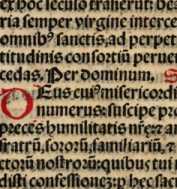 ex hoc seculo be
ria semper virgine interce
omnibꝰ sanctis, ad perpet
titudinis consortiū perue
cedas. Per dominum. S
DEus cuiꝰ misericordi
numerus: suscipe pr
preces humilitatis nr̄e: ⁊ an
fratrū, sororū, familiariū, ⁊
ctorū nostrorū: quibus tui n
disti confessionez: p hec sac